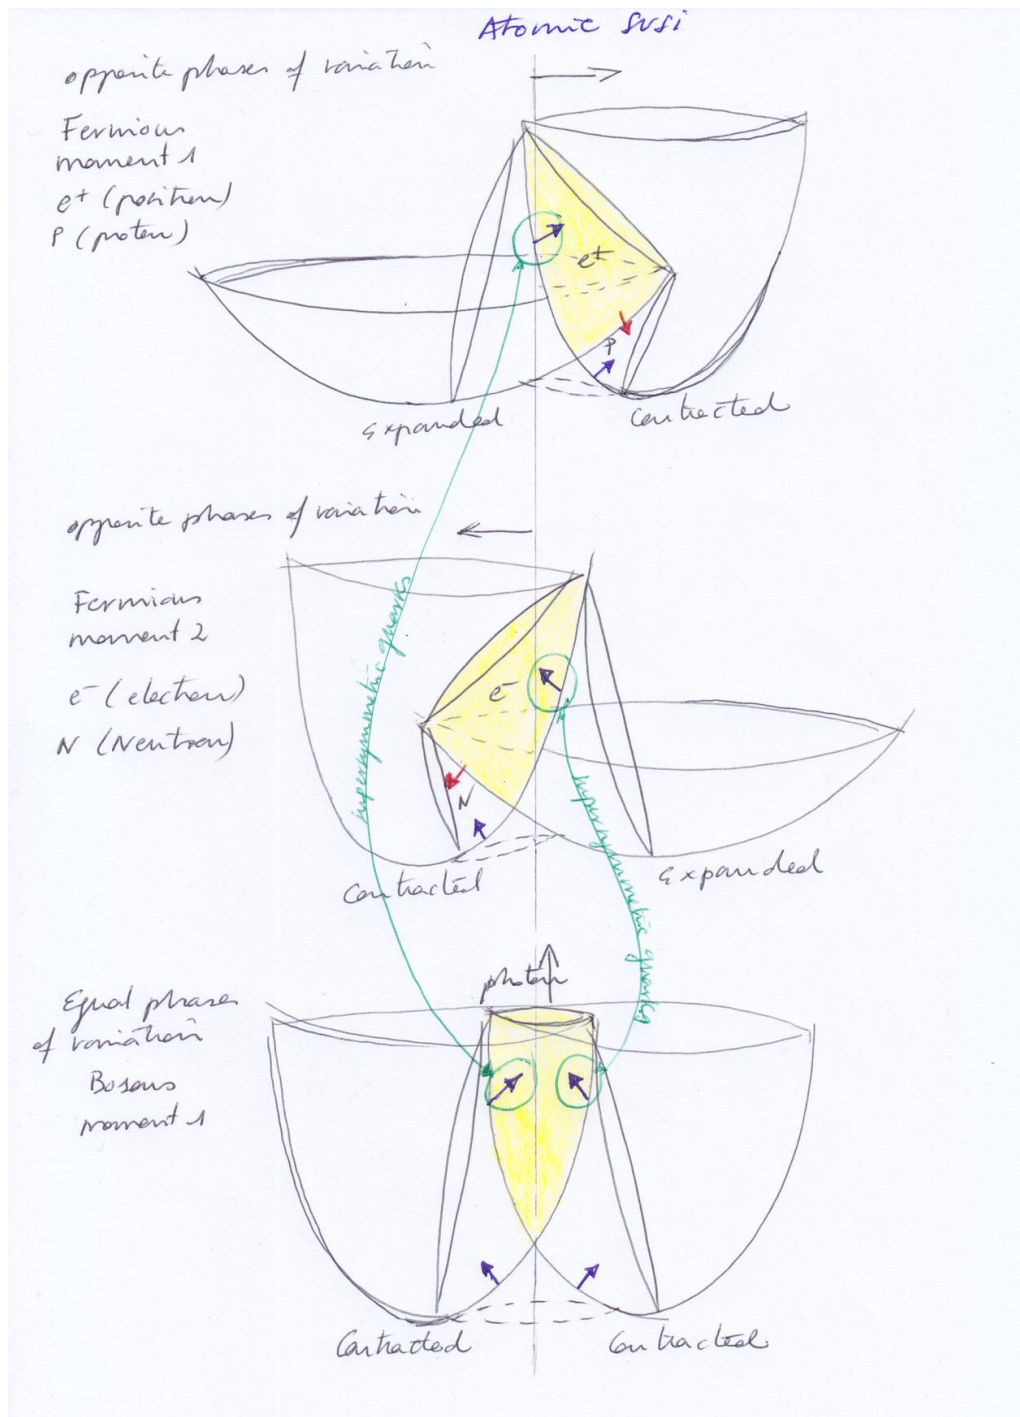 Atomic SUSI
opposite phases of variation
Fermions
moment 1
e+ (positron)
P (proton)
e+
P
expanded
Contracted
opposite phases of variation
Fermions
moment 2
e- (electron)
N (Neutron)
e-
N
supersymmetric quarks
supersymmetric quarks
Contracted
expanded
photon
Equal phases
of variation
Bosons
moment 1
Contracted
Contracted